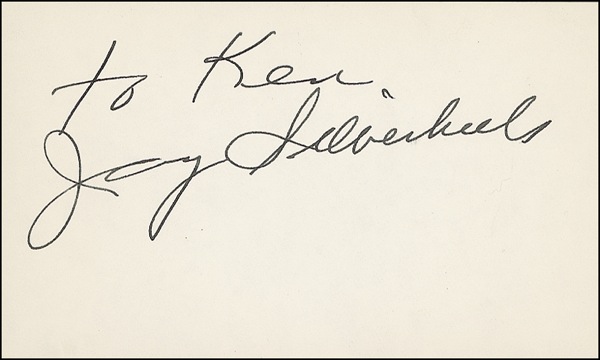 to Ken.
Jay Silverheels